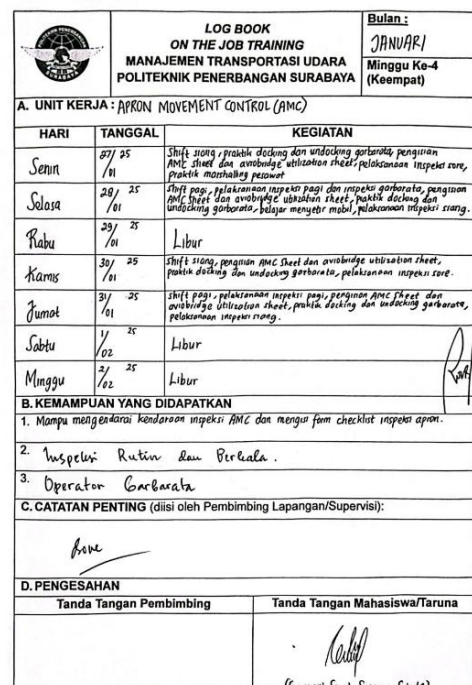 LOG BOOK
ON THE JOB TRAINING
MANAJEMEN TRANSPORTASI UDARA
POLITEKNIK PENERBANGAN SURABAYA
Bulan :
JANUARI
Minggu Ke-4
(Keempat)
A. UNIT KERJA : APRON MOVEMENT CONTROL (AMC)
HARI TANGGAL KEGIATAN
Senin 27/01 25 Shift siang, praktik docking dan undocking garbarata, pengisian
AMC Sheet dan aviobridge utilization sheet, pelaksanaan inspeksi sore,
praktik marshalling pesawat
Selasa 28/01 25 Shift pagi, pelaksanaan inspeksi pagi dan inspeksi garbarata, pengisian
AMC Sheet dan aviobridge utilization sheet, praktik docking dan
undocking garbarata, belajar menyetir mobil, pelaksanaan inspeksi siang.
Rabu 29/01 25 Libur
Kamis 30/01 25 Shift siang, pengisian AMC Sheet dan aviobridge utilization sheet,
praktik docking dan undocking garbarata, pelaksanaan inspeksi sore.
Jumat 31/01 25 Shift pagi, pelaksanaan inspeksi pagi, pengisian AMC Sheet dan
aviobridge utilization sheet, praktik docking dan undocking garbarata,
pelaksanaan inspeksi siang.
Sabtu 1/02 25 Libur
Minggu 2/02 25 Libur
B. KEMAMPUAN YANG DIDAPATKAN
1. Mampu mengendarai kendaraan inspeksi AMC dan mengisi form checklist inspeksi apron.
2. Inspeksi Rutin dan Berkala.
3. Operator Garbarata
C. CATATAN PENTING (diisi oleh Pembimbing Lapangan/Supervisi):
D. PENGESAHAN
Tanda Tangan Pembimbing Tanda Tangan Mahasiswa/Taruna